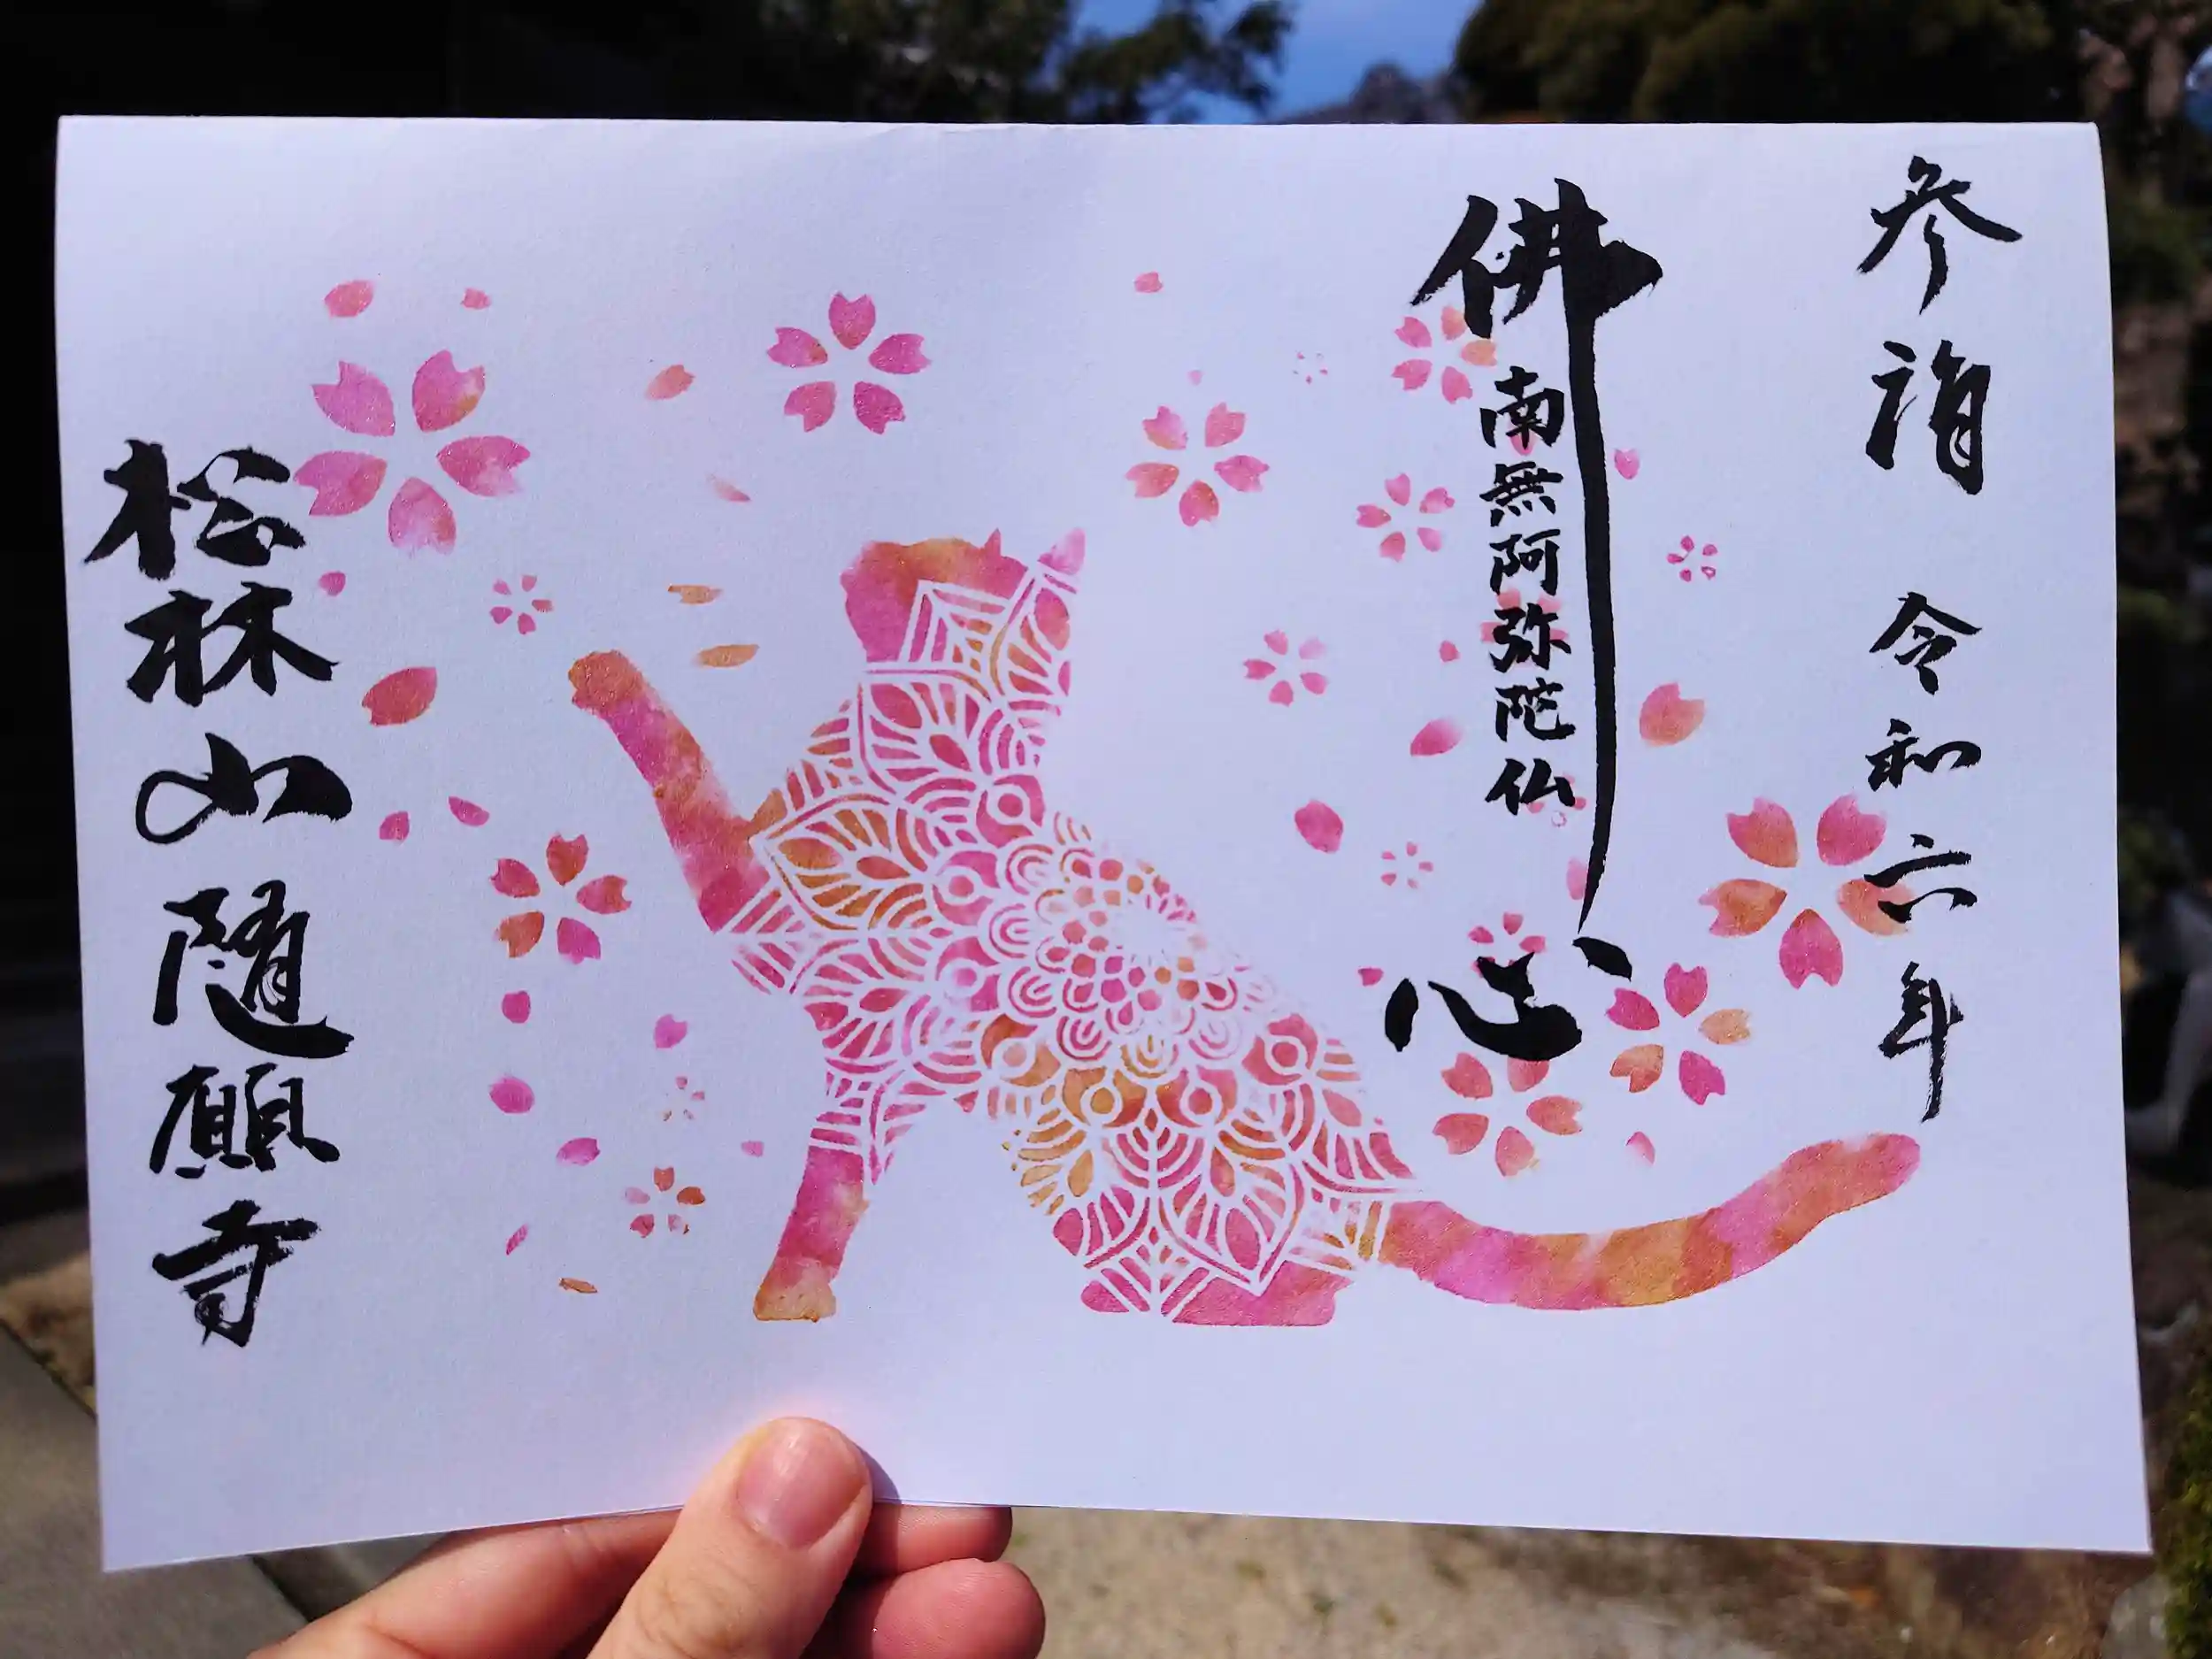 参詣 令和六年
佛心
南無阿弥陀仏
松林山随願寺